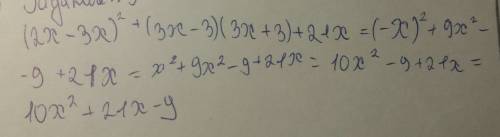 (2x-3x)² + (3x-3)(3x+3)+21x = (-x)² + 9x² -
-9 +21x = x² + 9x² -9 +21x = 10x² -9 +21x =
10x² + 21x -9